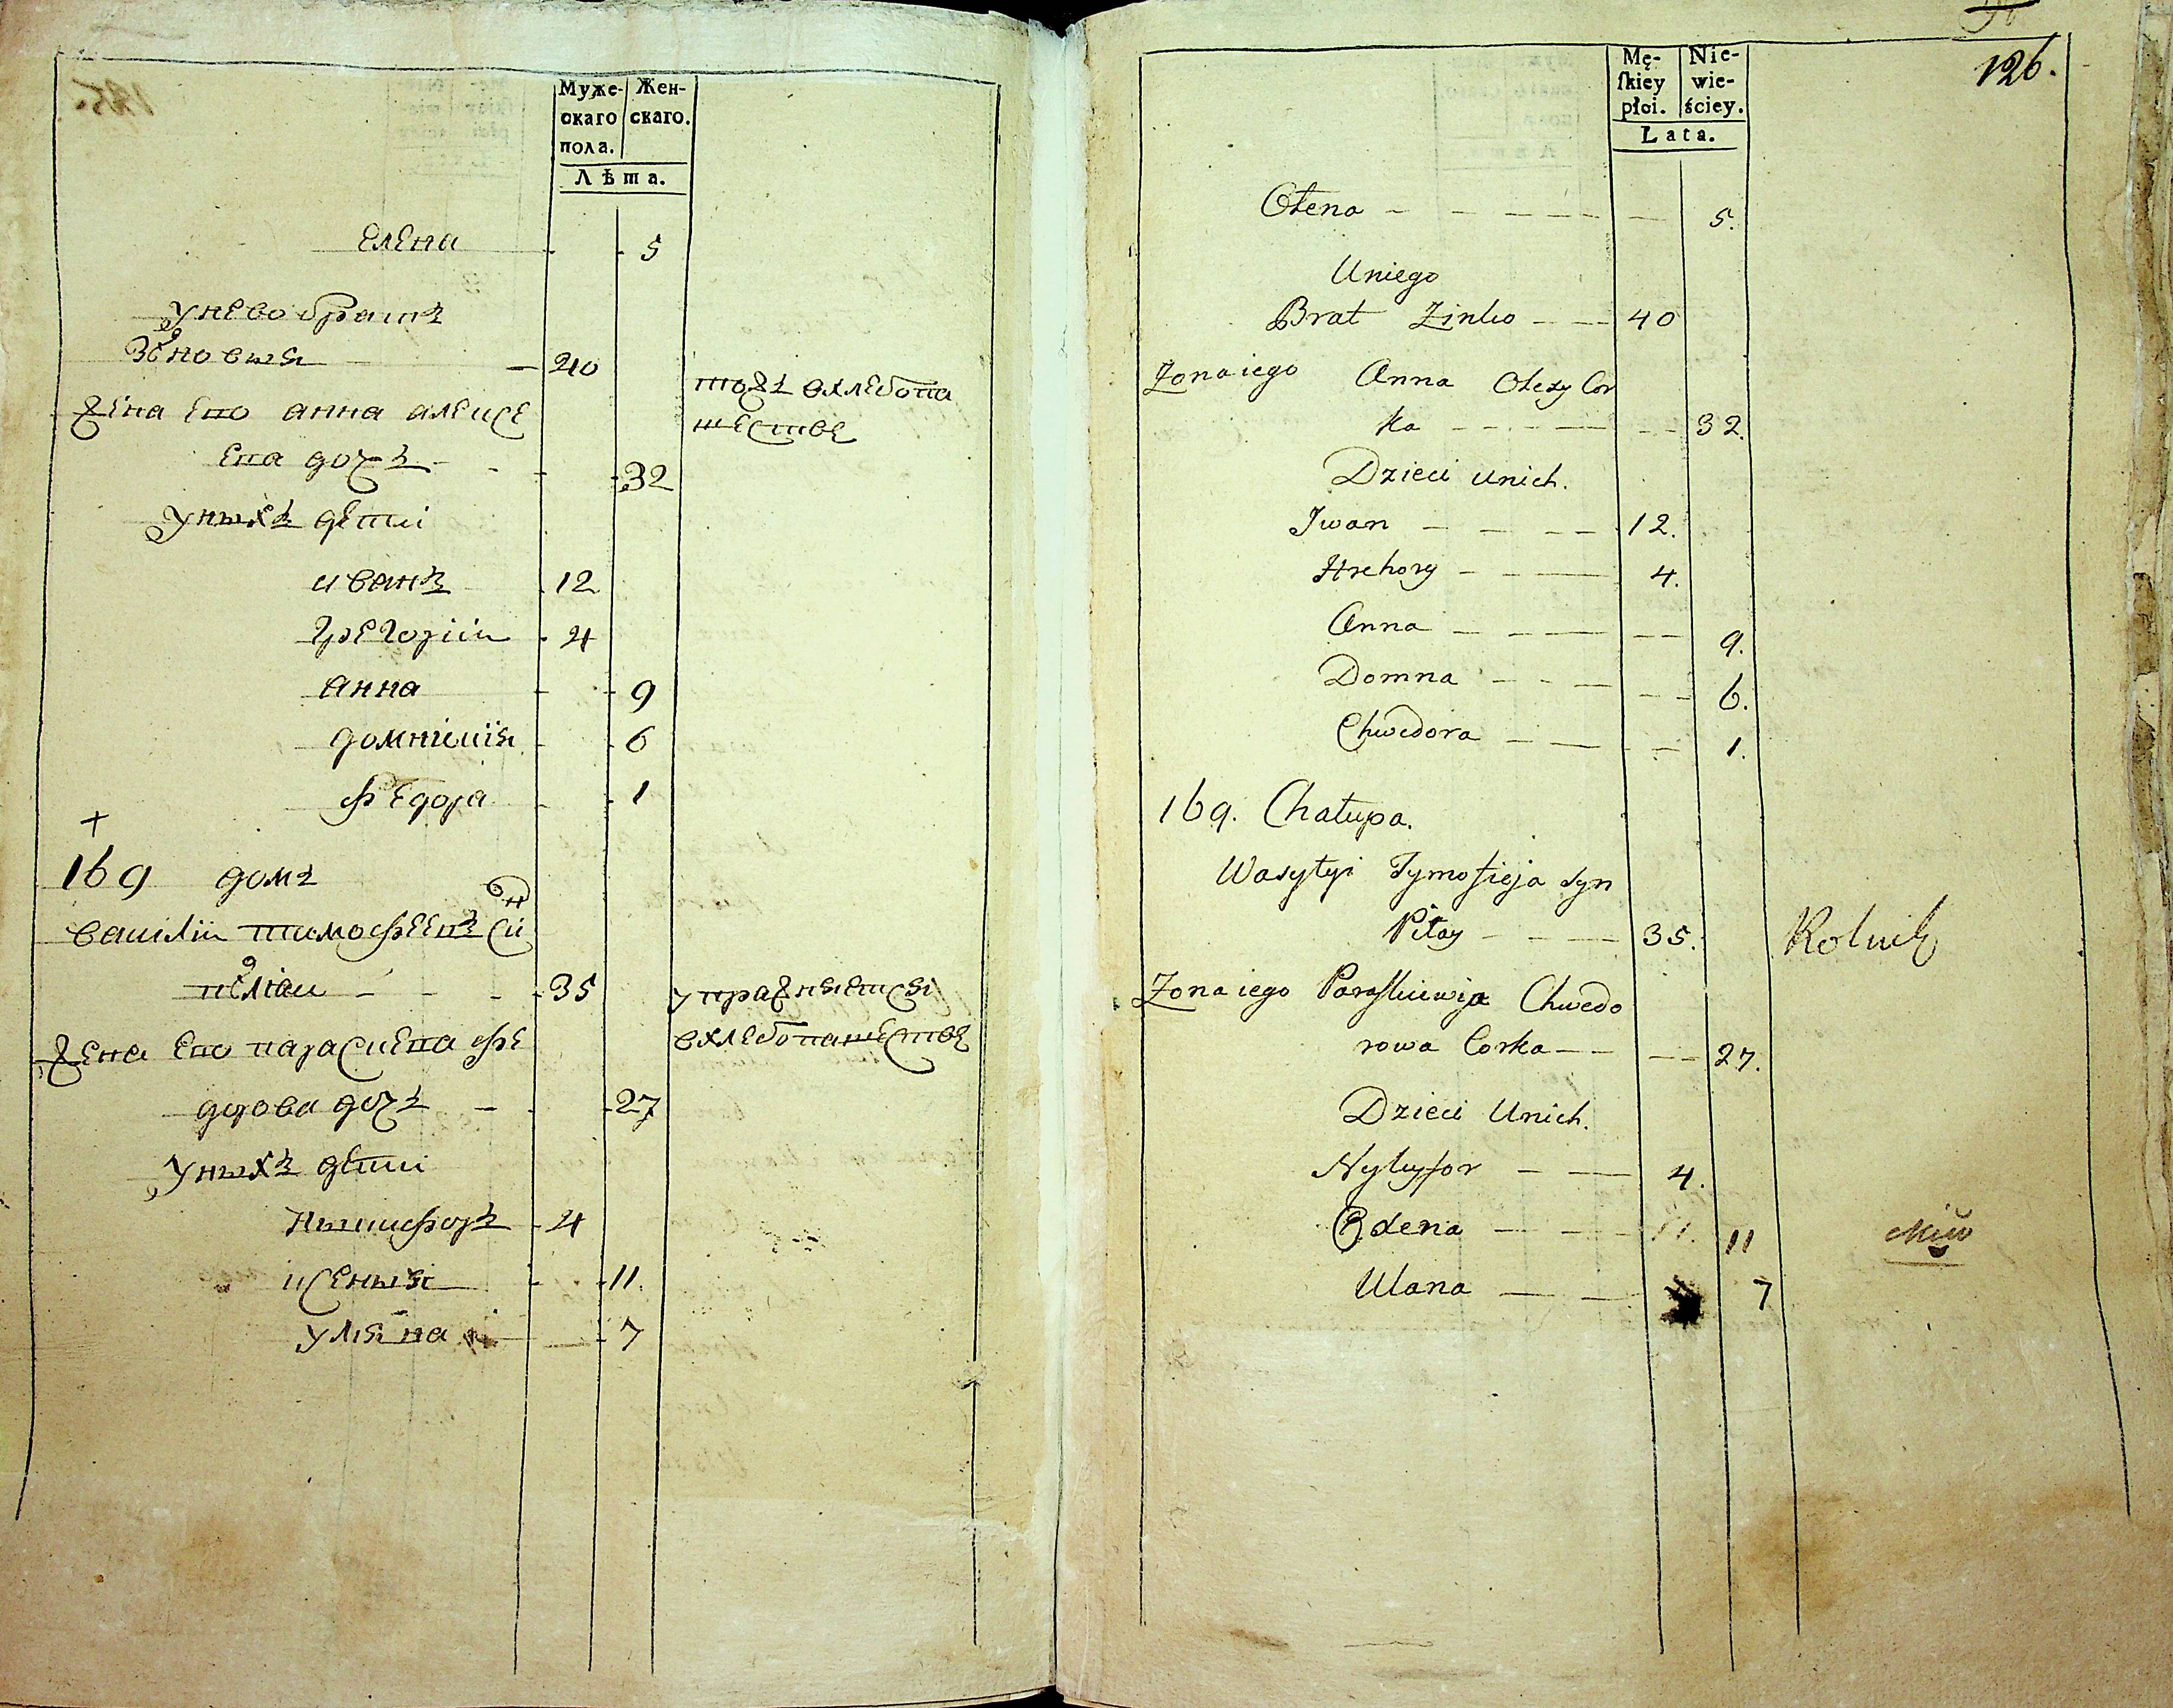 Муже-
скаго
пола.
Жен-
скаго.
Лѣта.
Елена 5
унево братъ
Зѣновия 40
жена его анна алексе
ева дочъ 32
тожъ вхлебопа
шестве
уныхъ дети
иванъ 12
григорiи 4
анна 9
домникия 6
федора 1
+
169 домъ
василiи тимофеевъ син
пилiаи 35
упражняется
вхлебопашестве
жена его параскева фе
дорова дочъ 27
уныхъ дети
никифоръ 4
ксения 11.
уляна 7
126.
Mę-
skiey
płci.
Nie-
wie-
ściey.
Lata.
Ołena 5.
Uniego
Brat Zinko 40
Zona iego Anna Olexy Cor
ka 32.
Dzieci unich.
Jwan 12.
Hrehory 4.
Anna 9.
Domna 6.
Chwedora 1.
169. Chałupa.
Wasylyi Tymofieja syn
Piłay 35. Rolnik
Zona iego Paraskiewija Chwedo
rowa Corka 27.
Dzieci Unich.
Nykyfor 4.
Oxena 11. 11
Ulana 7